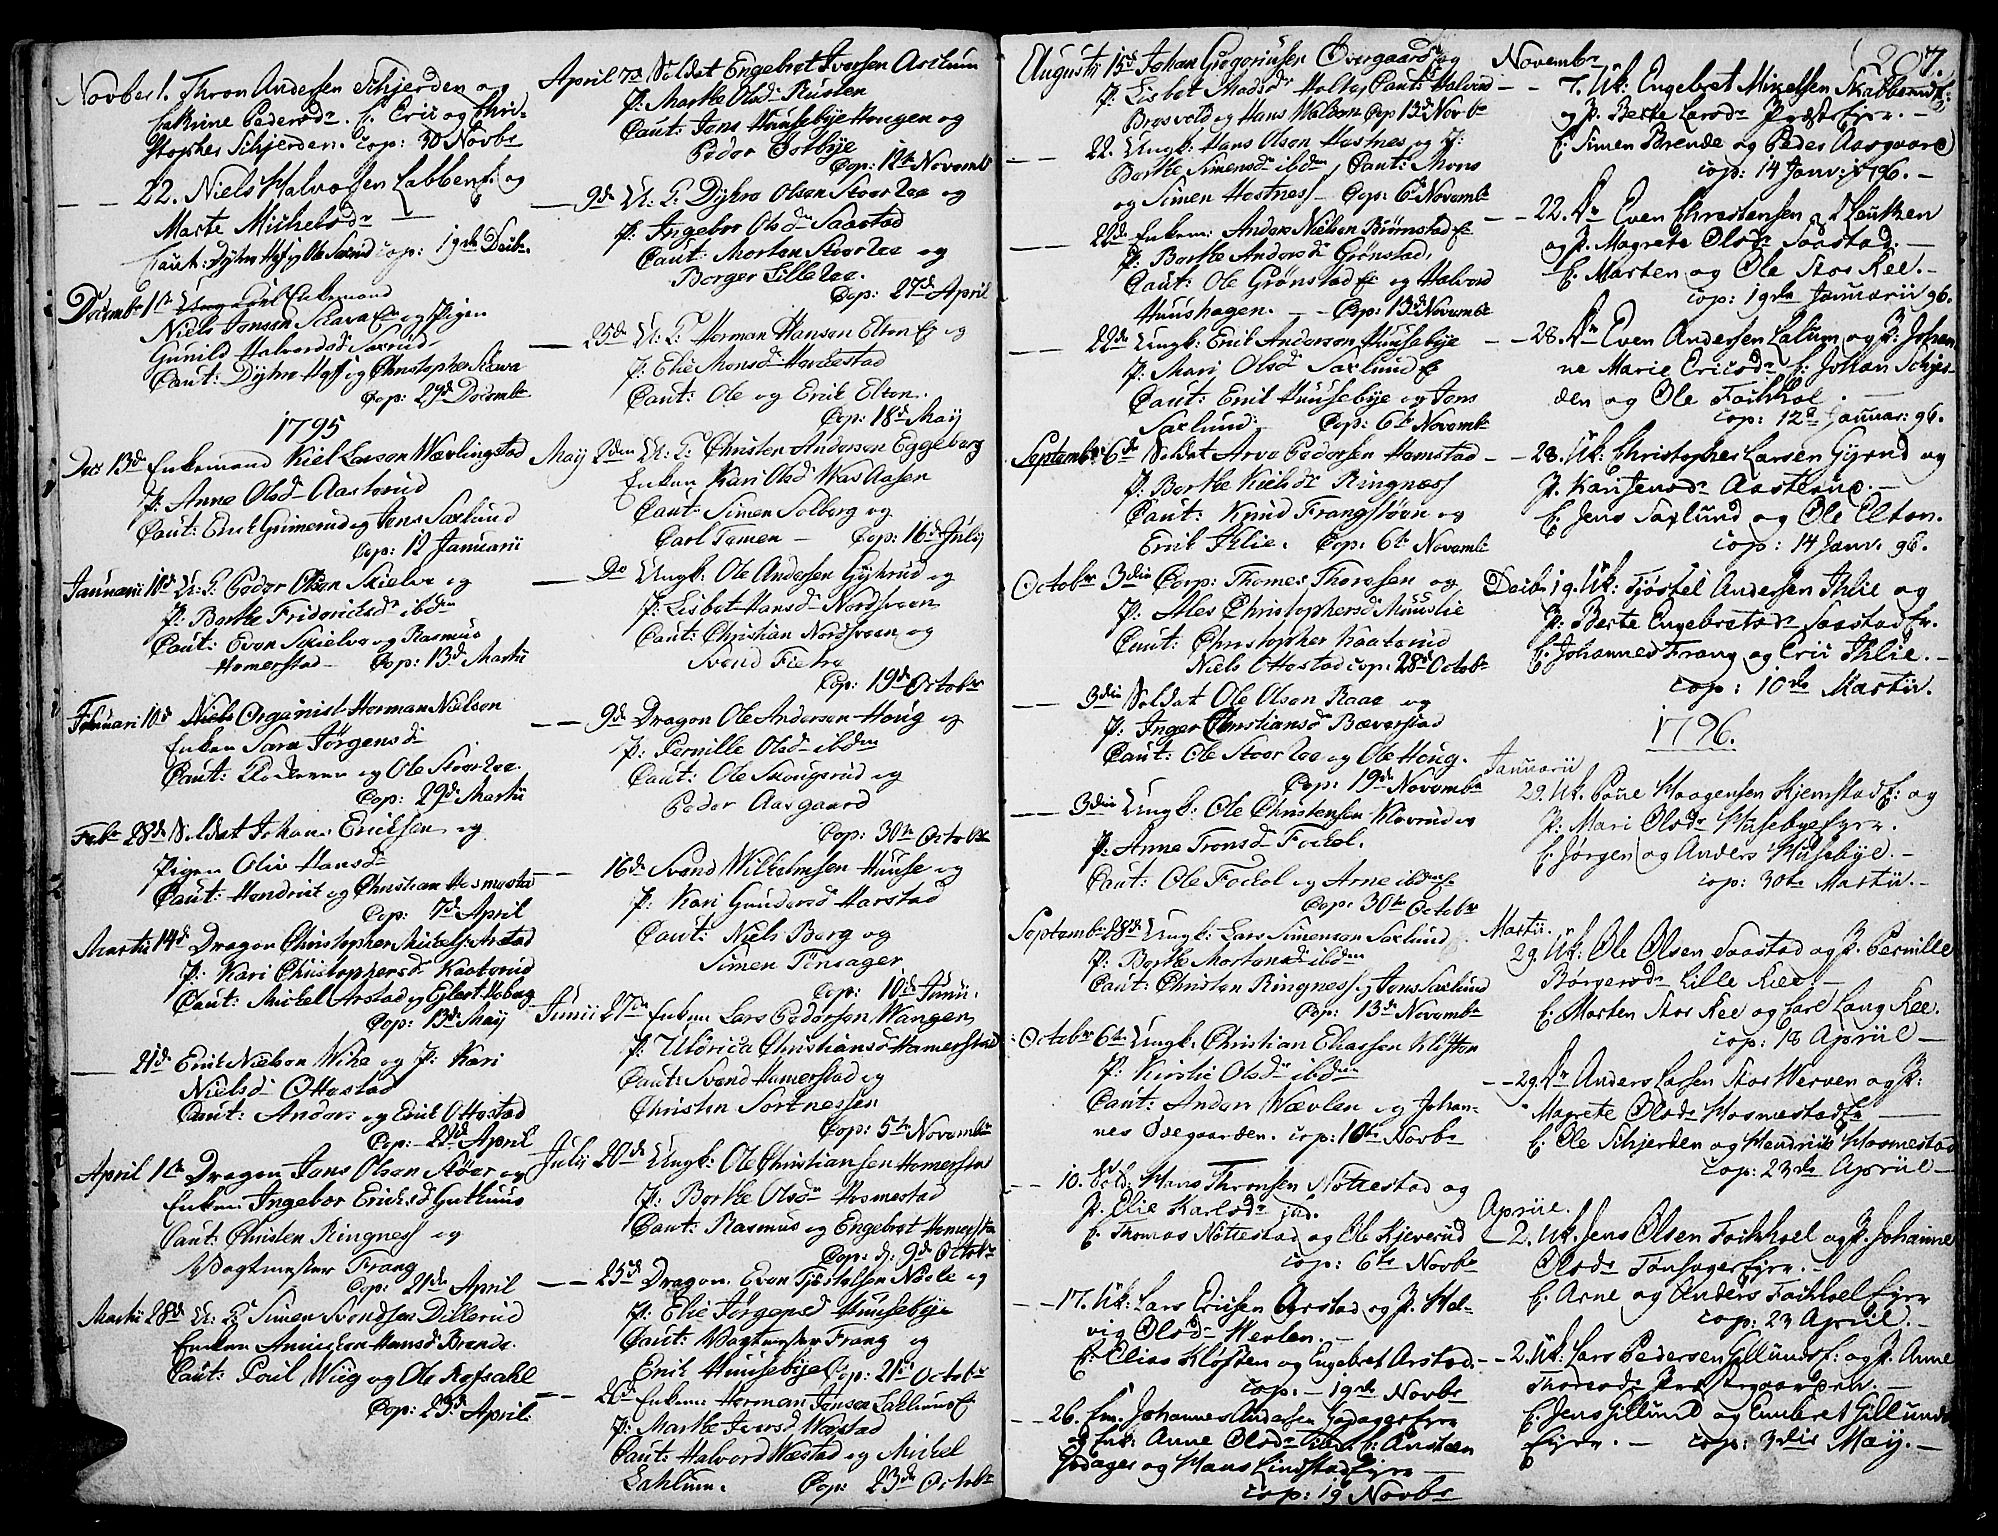 Novber 1. Thron Andersen Schjerden og
Cathrine Pedersdr. C. Eric og Chri-
stopher Schjerden. Cop: 30 Novbr
22. Niels Halvorsen Labben og
Marte Michelsdr
Caut: Dyhre Hof og Ole Sælid cop: 19de Decbr.
Decembr 1te Enkemand
Niels Jensen Skava og Pigen
Gunild Halvorsd Saxrud
Caut: Dyhre Hoff og Christopher Skava
Cop: 29d Decembr
1795
Das 13de Enkemand Kiel Larsen Wævlingstad
P: Anne Olsd Aasterud
Caut: Erik Grimerud og Jens Saxlund
Cop: 12 Januarii
Januarii 18d U: K Peder Olsen Skielve og
P: Borthe Fridericksd ibdm
Caut: Even Skielve og Rasmus
Homerstad - Cop: 13d Martii
Februari 10d Organist Herman Nielsen
Enken Sara Jørgensd
Caut: og Ole Stoor Ree.
Cop: 29d Martii
Febr 28de Soldat Johan Ericksen og
Pigen Oliv Hansd
Caut: Hendrik og Christian Hosmestad
Cop: 7d April
Martii 14d Dragon Christopher Mickels: Arstad
P: Kari Christophersd Kaaterud
Caut: Mickel Arstad og Eylert Hoberg
Cop: 13d May
21d Erik Nielsen Wihe og P: Kari
Nielsd Ottestad
Caut: Anders og Erik Ottestad
Cop: 21d April
April 1te Dragon Jens Olsen Støer og
Enken Ingebor Ericksd Guthuus
Caut: Christen Ringnes og
Vagtmester Frang
Cop: 21de April
Martii 28d U: K Simen Svendsen Dillerud
Enken Anniken Hansd Brende.
Caut: Poul Wiig og Ole Rofsahl
Cop: 23d April:
April 7d Soldat Engebret Iversen Arstuun
P: Marthe Olsd Rusten
Caut: Jens Huusebye Hougen og
Peder Østbye
Cop: 12te Novemb
9de U: K Dyhre Olsen Stoor Ree og
P: Ingebor Olsd Saastad
Caut: Morten Stoor Ree og
Borger Lille Ree.
Cop: 27d April
25d U: K: Herman Hansen Elton og
P: Elie Monsd Horkestad
Caut: Ole og Erik Elton.
Cop: 18d May
Maij 2den U: K: Christen Andersen Eggeberg
Enken Kari Olsd Was Aasen
Caut: Simen Solberg og
Carl Tomen - Cop: 16d Julij
Do Ungk: Ole Andersen Gyhrud og
P: Lisbet Hansd Nordsveen
Caut: Christian Nordsveen og
Svend Fietre
Cop: 19d Octobr
9d Dragon Ole Andersen Houg og
P: Pernille Olsd ibdm
Caut: Ole Skougsrud og
Peder Aasgaard
Cop: 30te Octobr
16d Svend Wilhelmsen Huuse og
P: Kari Gundersd Harstad
Caut: Niels Berg og
Simen Tønsager
Cop: 10d Junii.
Junii 27de Enkem Lars Pedersen Wangen
P: Ulorica Christiansd Hamerstad
Caut: Svend Hamerstad og
Christen Sørtnessen
Cop: 5te Novembr
Julij 20de Ungk: Ole Christiansen Homerstad
P: Borthe Olsd Hosmestad
Caut: Rasmus og Engebret Homerstad
Cop: d: 9d Octobr
25d Dragon. Even Tjøstelsen Nøsle og
P: Elie Jørgensd Huusebye
Caut: Vagtmester Frang og
Erik Huusebye Cop: 21d Octobr
26d Enkem Herman Jensen Lahluus
P: Marthe Iversd Westad
Caut: Halvord Westad og Mickel
Lahlum. Cop: 23d Octobr
207.
Augusti 15d Johan Gregoriusen Øvergaard og
P: Lisbet Madsd Holte, Caut: Halvord
Brosveld og Hans Walboen Cop 13d Novbr
22. Ungk: Hans Olsen Hostnes og P:
Borthe Simensd ibdm, Caut: Mons
og Simen Hostness - Cop: 6d Novembr
22d Enkem: Anders Nielsen Biørnstad
P: Borthe Andersd Grønstad,
Caut: Ole Grønstad og Halvord
Huushagen. - Cop: 13d Novembr
22de Ungk: Erik Andersen Huusebye
P: Mari Olsd Saxlund
Caut: Erik Huusebye og Jens
Saxlund. Cop: 6te Novembr
Septembr 6d Soldat Arve Pedersen Hamstad
P: Borthe Kielsdr Ringness
Caut: Knud Frangstøen og
Erik Ihlie. Cop: 6te Novembr
Octobr 3die Corp: Thomes Thoresen og
P: Ahles Christophersd Muuslie
Caut: Christopher Kaaterud
Niels Ottestad cop: 28d Octobr
3die Soldat Ole Olsen Raae og
P: Inger Christiansd Bæverstad
Caut: Ole Stoor Ree og Ole Houg.
Cop: 19d Novembr
3die Ungk: Ole Christensen Klæverud og
P: Anne Tronsd Fockol.
Caut: Ole Fockol og Arne ibdm
Cop: 30te Octobr
Septembr 28de Ungk: Lars Simensen Saxlund
P: Borthe Mortensd ibdm
Caut: Christen Ringness og Jens Saxlund
Cop: 13d Novembr
Octobr 6te Ungk: Christian Eliassen Kløften
P: Kirstie Olsd ibdm
Caut: Anders Wævlen og Johan-
nes Ødegaarden. cop: 10te Novbr
10. Sold: Hans Thronsen Nøttestad og
P. Elie Karlsdr ibd.
C. Thomas Nøttestad og Ole Kjeverud
cop: 6te Novbr
17. Uk: Lars Ericsen Arstad og P. Hel-
vig Olsdr Wevlen. -
C. Elias Kløften og Engebret Arstad.
cop. - 19de Novbr
26. Em. Johannes Andersen Godager Eyer
og Enk: Anne Olsdr ibd. C: Anstæn
Godager og Hans Lindstad Eyer
cop: 19 Novbr
Novembr
7. Uk: Engebret Mikelsen Skabberud E:
og P. Berte Larsdr Præste Eyer. -
C. Simen Brende og Peder Aasgaard
cop: 14 Janv: 1796. -
22. Dr Even Christensen Skeuthen
og P. Magrete Olsdr Saastad. -
C. Morten og Ole Stor Ree. -
cop: 19de Januarii 96.
28. Dr Even Andersen Lalum og P. Johan-
ne Marie Ericsdr C. Johan Schjer-
den og Ole Foskhol. -
cop: 12te Januar: 96.
28. Uk: Christopher Larsen Gyrud og
P. Kari Jensdr Aasterud. -
C. Jens Saxlund og Ole Elton.
cop: 14 Janv. 96.
Decbr 19. Uk: Tjøstel Andersen Ihlie og
P. Berte Engebretsdr Saastad Er.
C. Johannes Frang og Eric Ihlie. -
cop: 10de Martii.
1796.
Januarii
29. Uk. Povel Haagensen Hjemstad E: og
P. Mari Olsdr Husebye Eyer.
C. Jørgen og Anders Husebye. -
cop: 30te Martii. -
Martii.
29. Uk: Ole Olsen Saastad og P. Pernille
Børgersdr Lille Ree. -
C. Morten Stor Ree og Carl Lang Ree.
cop: 18 Apriil -
29. Dr Anders Larsen Stor Werven og P:
Magrete Olsdr Hosmestad E
C. Ole Schjerden og Hendrick Hosmestad
cop: 23de Apriil -
Apriil.
2. Uk. Jens Olsen Foskhoel og P. Johanne
Olsdr Tønsager Eyer. -
C. Arne og Anders Foskhoel Eyer
cop: 23 Apriil. -
2. Uk: Lars Pedersen Gillund E: og P. Anne
Thoresdr Præstegaarden. -
C. Jens Gillund og Embret Gillund
Eyer. - cop: 3die May. -